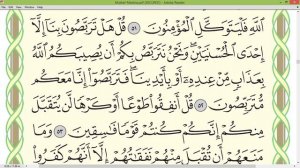 Mushaf Madina.pdf (SECURED) - Adobe Reader
ٱللَّهِ فَلْيَتَوَكَّلِ ٱلْمُؤْمِنُونَ ٥١ قُلْ هَلْ تَرَبَّصُونَ بِنَآ إِلَّآ
إِحْدَى ٱلْحُسْنَيَيْنِ وَنَحْنُ نَتَرَبَّصُ بِكُمْ أَن يُصِيبَكُمُ ٱللَّهُ
بِعَذَابٍ مِّنْ عِندِهِۦٓ أَوْ بِأَيْدِينَا فَتَرَبَّصُوٓا۟ إِنَّا مَعَكُم
مُّتَرَبِّصُونَ ٥٢ قُلْ أَنفِقُوا۟ طَوْعًا أَوْ كَرْهًا لَّن يُتَقَبَّلَ
مِنكُمْ إِنَّكُمْ كُنتُمْ قَوْمًا فَٰسِقِينَ ٥٣ وَمَا
مَنَعَهُمْ أَن تُقْبَلَ مِنْهُمْ نَفَقَٰتُهُمْ إِلَّآ أَنَّهُمْ كَفَرُوا۟